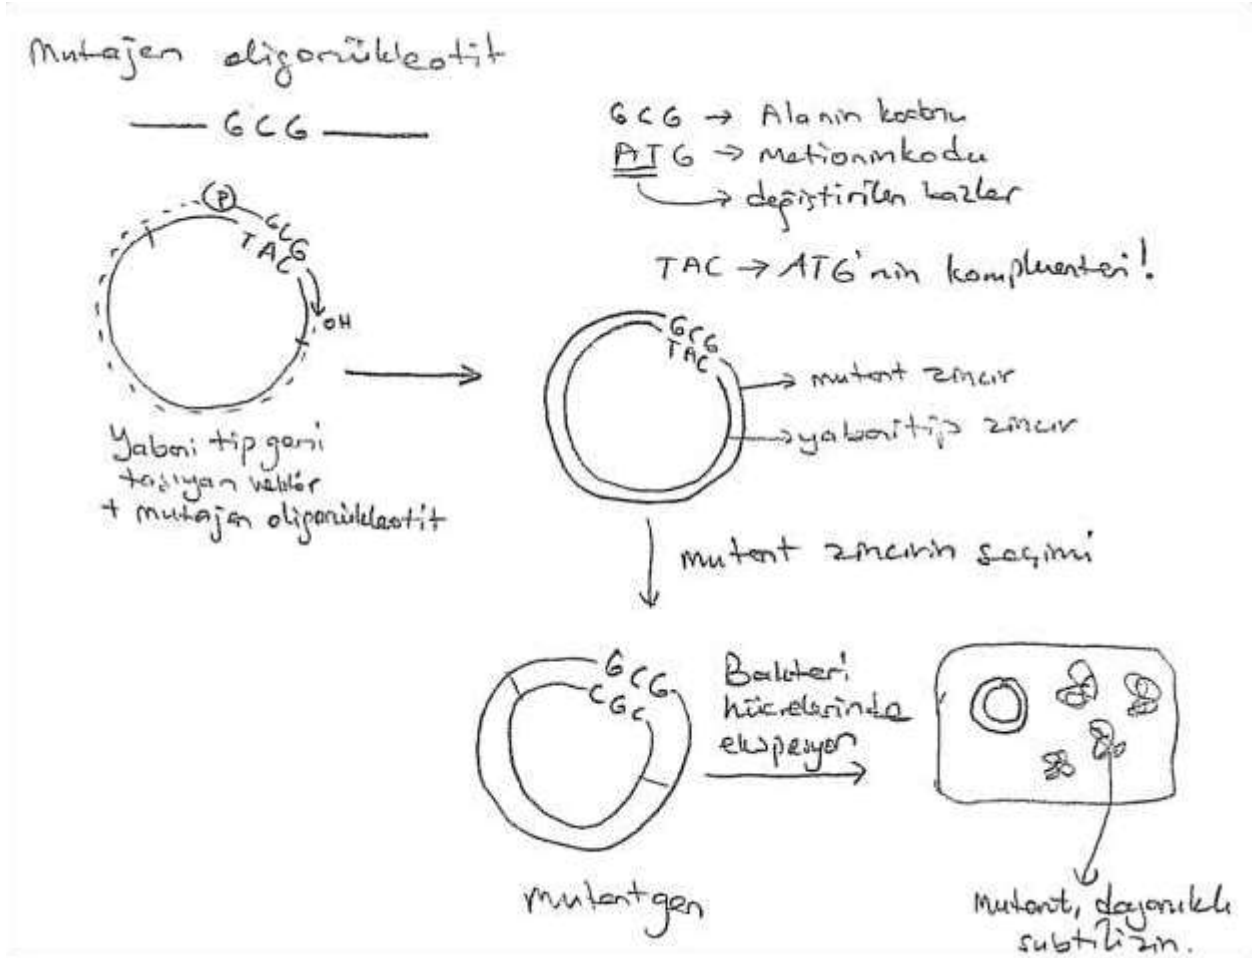 Mutajen oligonükleotit
GCG
GCG → Alanin kodonu
ATG → metioninkodu
→ değiştirilen bazlar
TAC → ATG'nin komplementeri!
P
GCG
TAC
OH
Yabani tip geni
taşıyan vektör
+ mutajen oligonükleotit
GCG
TAC
→ mutant zincir
→ yabani tip zincir
mutant zincirin seçimi
GCG
CGC
mutant gen
Bakteri
hücrelerinde
ekspesyon
Mutant, dayanıklı
subtilizin.